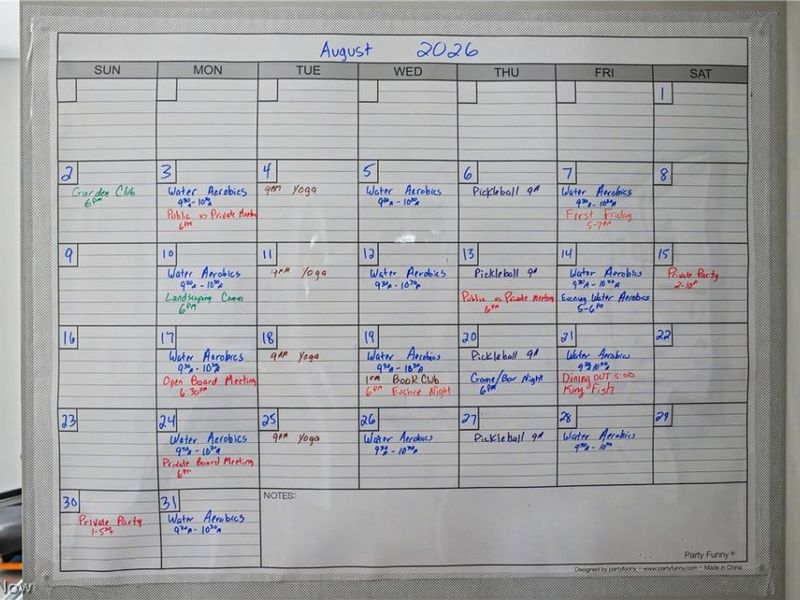 August 2026
SUN MON TUE WED THU FRI SAT
1
2 3 4 5 6 7 8
Garden Club
6PM
Water Aerobics
9³⁰A - 10³⁰A
Public vs Private Meeting
6PM
9AM Yoga
Water Aerobics
9³⁰A - 10³⁰A
Pickleball 9A
Water Aerobics
9³⁰A - 10³⁰A
First Friday
5-7PM
9 10 11 12 13 14 15
Water Aerobics
9³⁰A - 10³⁰A
Landscaping Comm
6PM
9AM Yoga
Water Aerobics
9³⁰A - 10³⁰A
Pickleball 9A
Public vs Private Meeting
6PM
Water Aerobics
9³⁰A - 10³⁰A
Evening Water Aerobics
5-6PM
Private Party
2-10P
16 17 18 19 20 21 22
Water Aerobics
9³⁰A - 10³⁰A
Open Board Meeting
6:30PM
9AM Yoga
Water Aerobics
9³⁰A - 10³⁰A
1PM Book Club
6PM Euchre Night
Pickleball 9A
Game/Bar Night
6PM
Water Aerobics
9³⁰-10³⁰A
Dining OUT 5:00
King Fish
23 24 25 26 27 28 29
Water Aerobics
9³⁰A - 10³⁰A
Private Board Meeting
6PM
9AM Yoga
Water Aerobics
9³⁰A - 10³⁰A
Pickleball 9A
Water Aerobics
9³⁰A - 10³⁰
30 31
Private Party
Water Aerobics
9³⁰A - 10³⁰A
NOTES:
Party Funny®
Designed by partyfunny ~ www.partyfunny.com ~ Made in China
Now